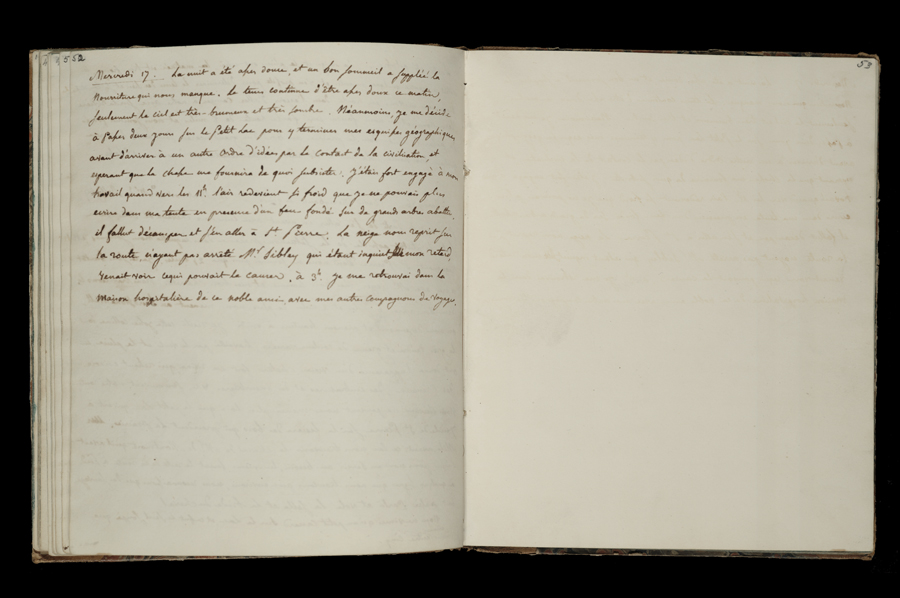 552
Mercredi 17. La nuit a été assés douce, et un bon sommeil a supplée la
Nourriture qui nous manque. Le tems continue d'être assés doux ce matin,
seulement le ciel est très-brumeux et très sombre. Néanmoins, je me décide
à passer deux jours sur le Petit Lac pour y terminer mes esquisses géographiques
avant d'arriver à un autre ordre d'idées par le contact de la civilisation et
esperant que la chasse me fournira de quoi subsister. J'étais fort engagé à mon
travail quand vers les 11h. l'air redevient si froid que je ne pouvais plus
ecrire dans ma tente en presence d'un feu fondé sur de grands arbres abattu.
il fallut décamper et s'en aller à St. Pierre. La neige nous reprit sur
la route, n'ayant pas arreté Mr. Sibley qui étant inquiet de mon retard,
venait voir cequi pouvait le causer. à 3h. je me retrouvai dans la
Maison hospitalière de ce noble ami, avec mes autres compagnons de voyage.
53